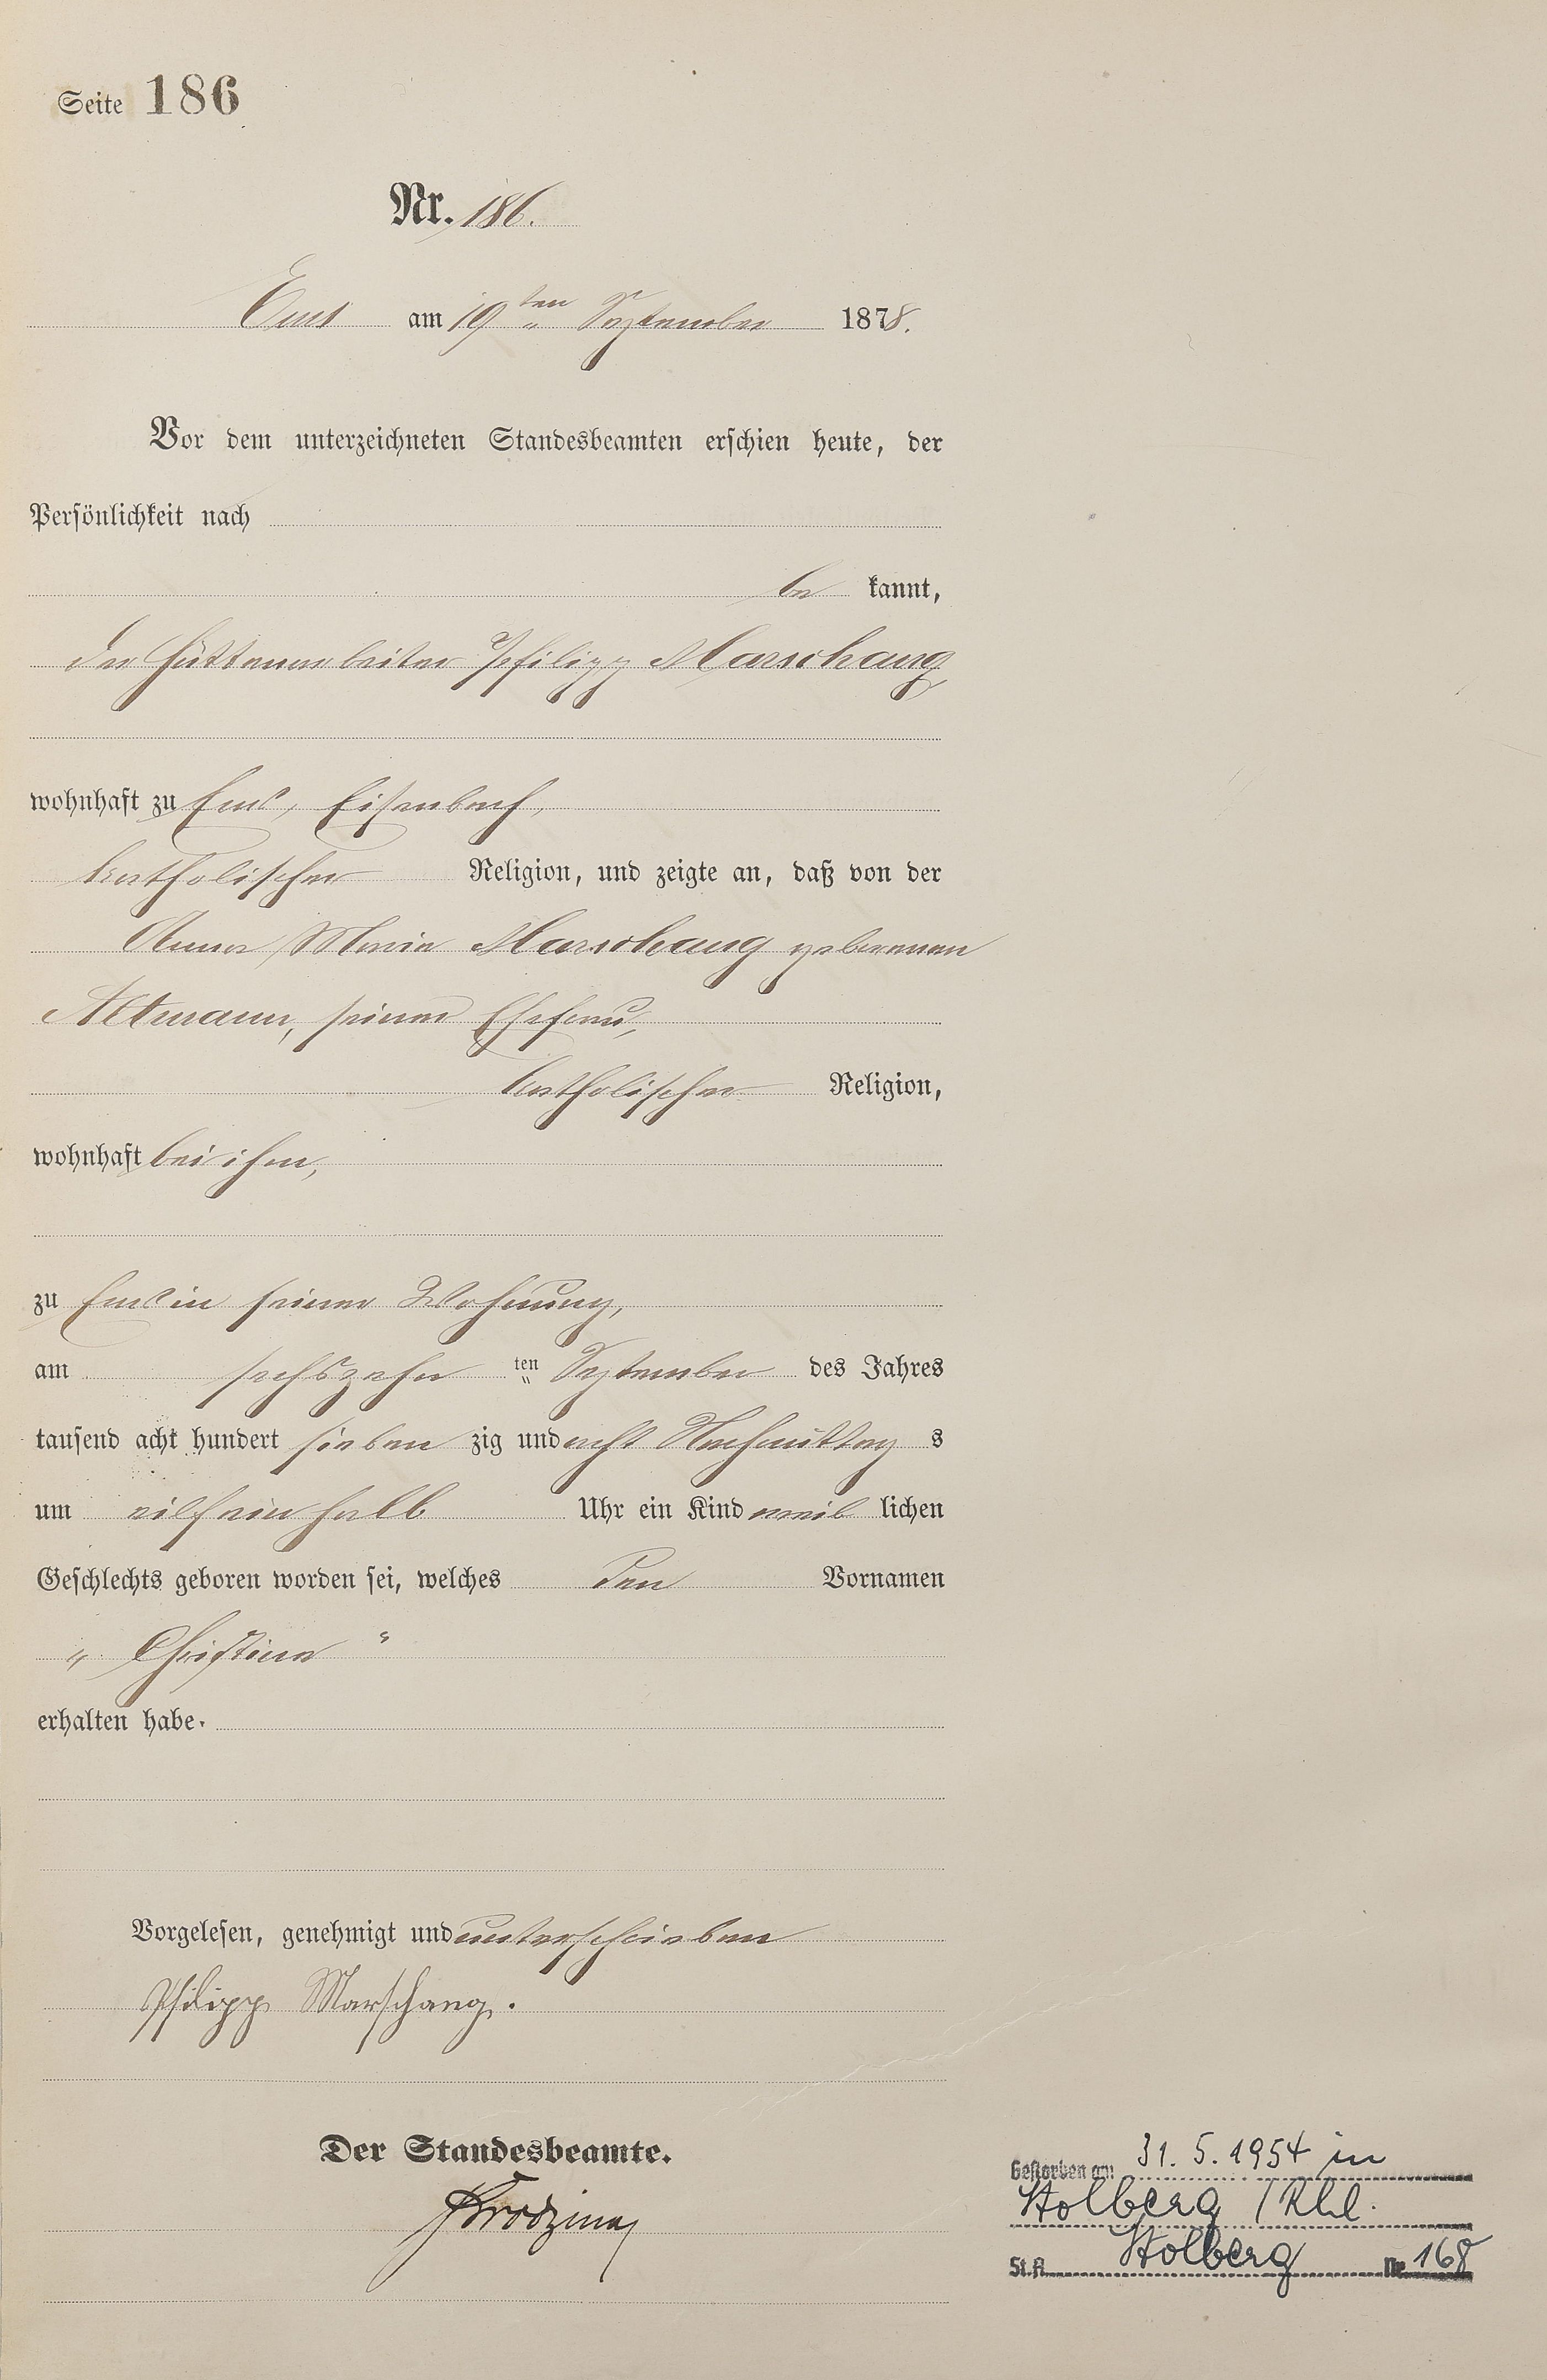 Seite 186
Nr. 186.
Ems am 19ten September 1878.
Vor dem unterzeichneten Standesbeamten erschien heute, der
Persönlichkeit nach
be kannt,
der Hüttenarbeiter Philipp Marschang,
wohnhaft zu Ems, Eisenbach,
katholischer Religion, und zeigte an, daß von der
Anna Maria Marschang geborenen
Altmann, seiner Ehefrau,
katholischer Religion,
wohnhaft bei ihm,
zu Ems in seiner Wohnung,
am sechszehn ten September des Jahres
tausend acht hundert sieben zig und acht Nachmittag s
um eilf ein halb Uhr ein Kind weib lichen
Geschlechts geboren worden sei, welches den Vornamen
„ Christina “
erhalten habe.
Vorgelesen, genehmigt und unterschrieben
Philipp Marschang.
Der Standesbeamte.
Gestorben am 31. 5. 1954 in
Stolberg / Rhl.
St.A. Stolberg Nr. 168